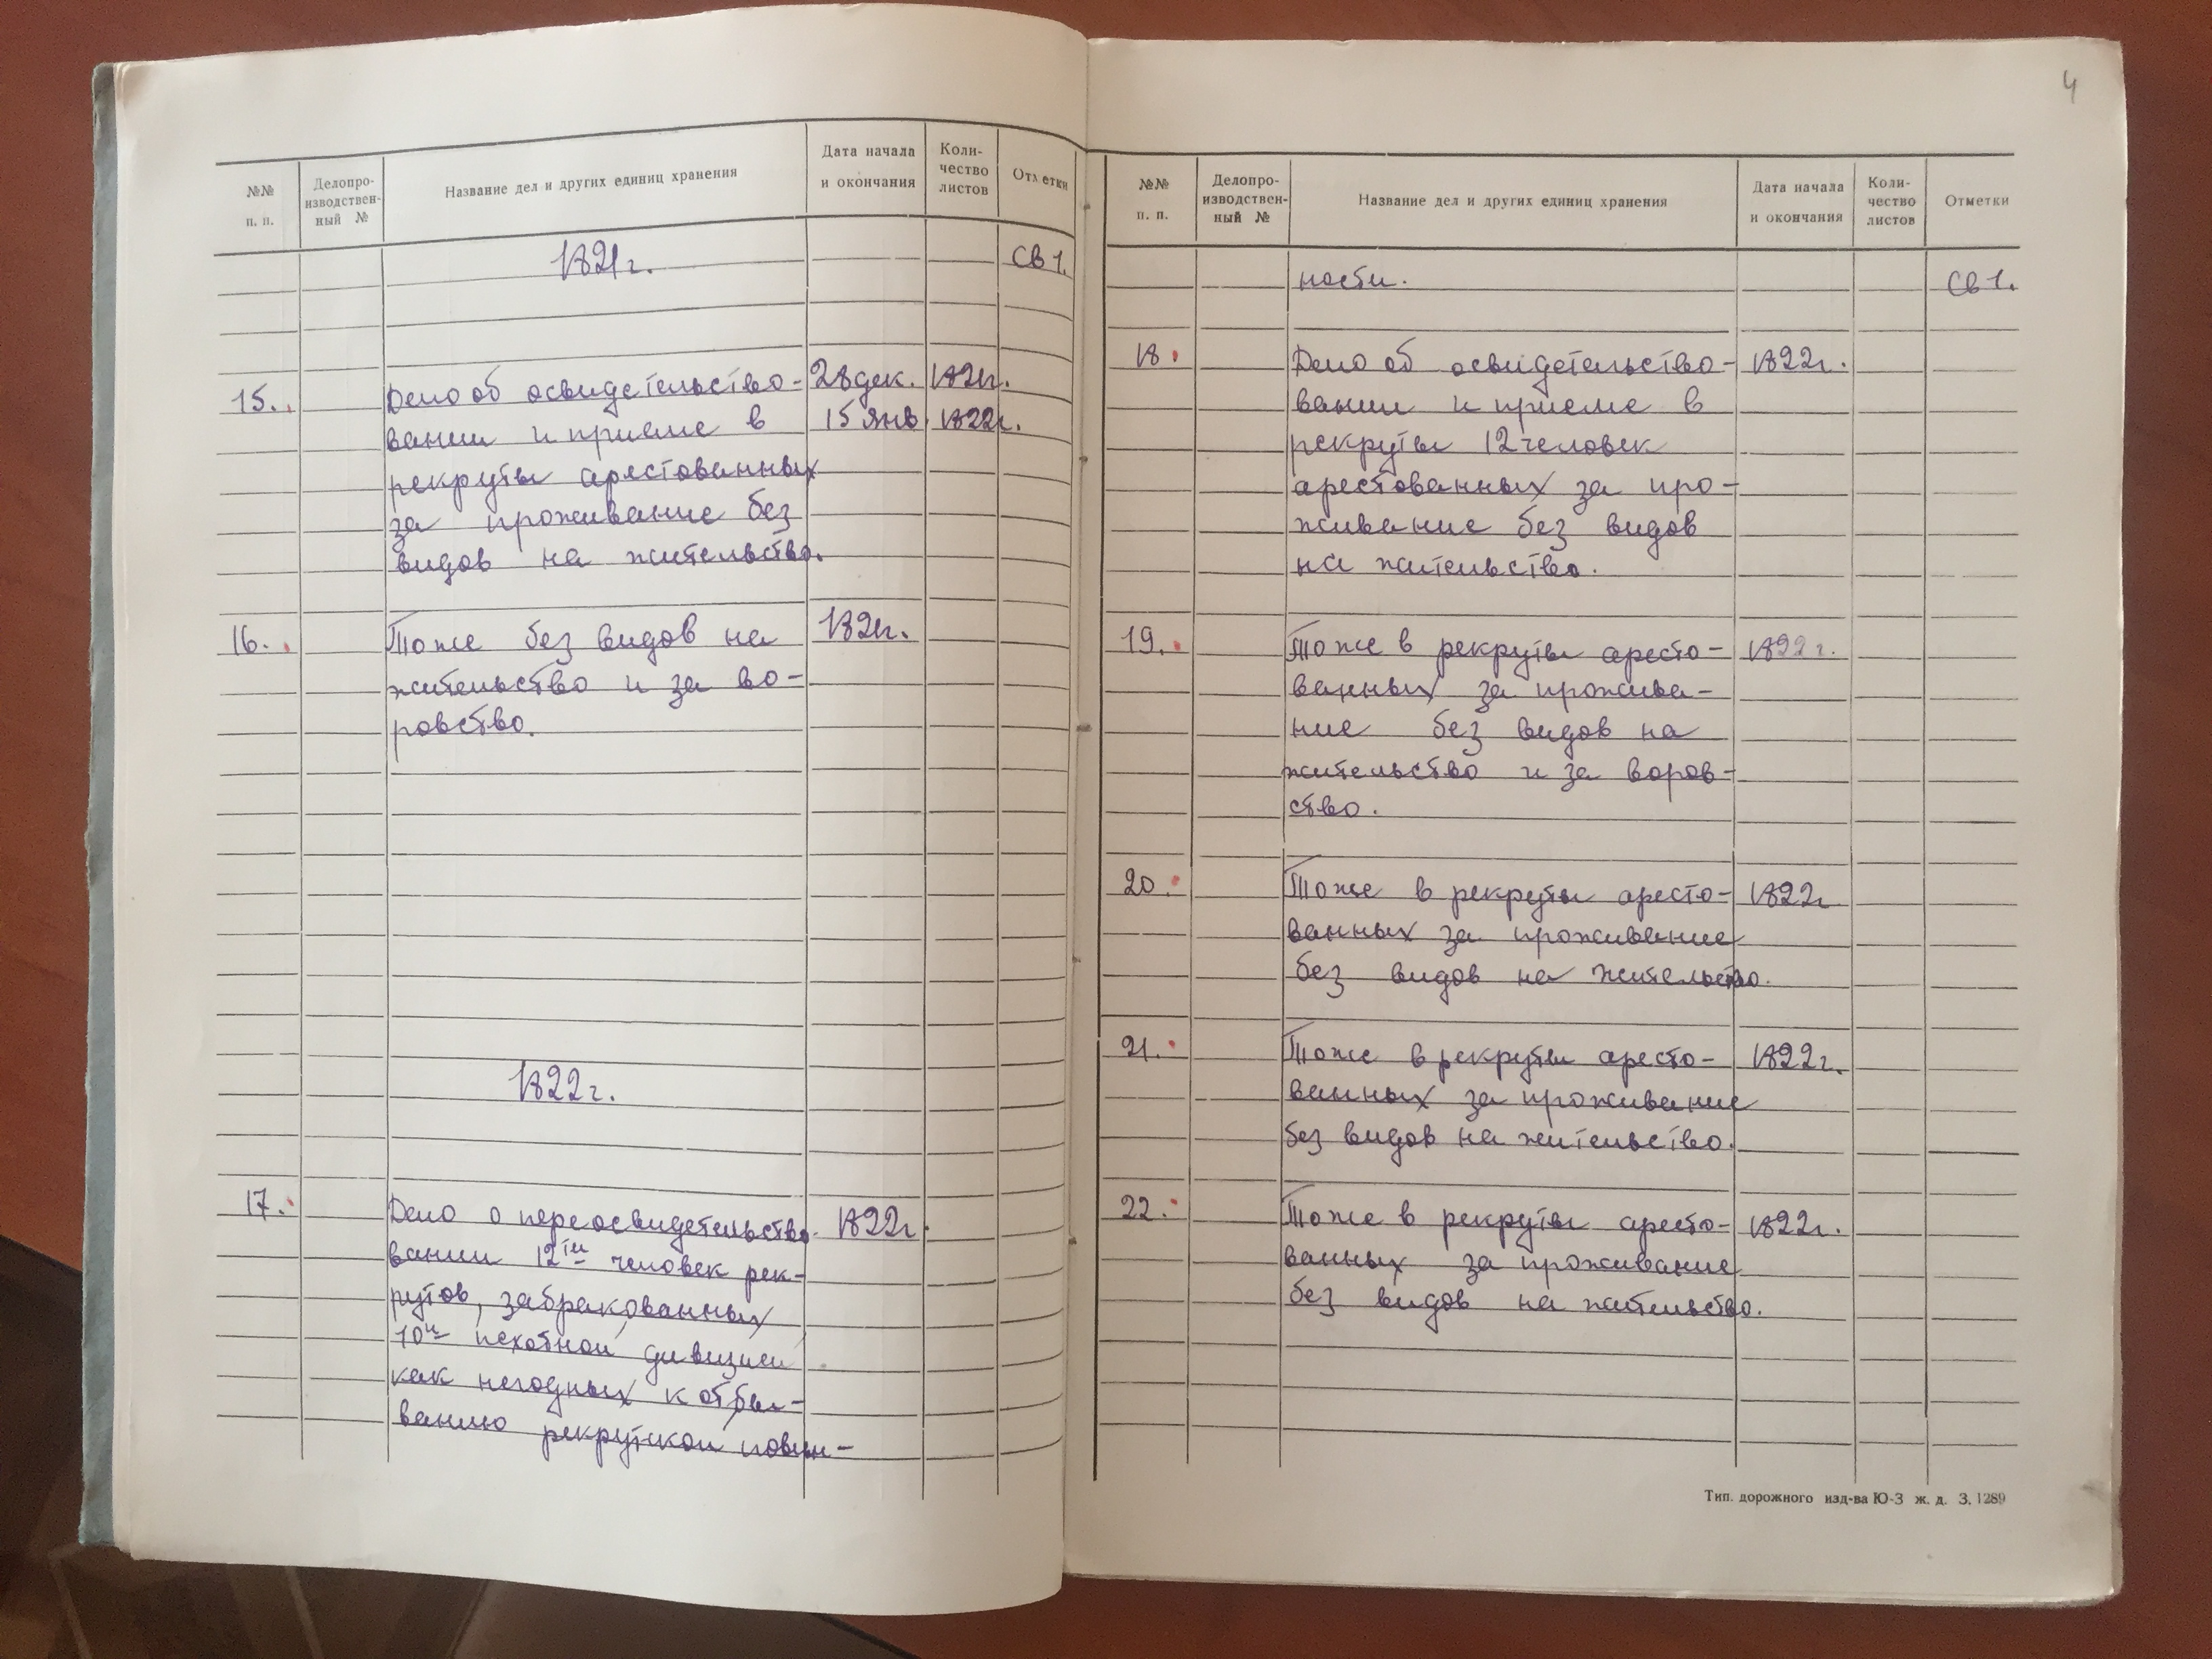 №№ п. п. Делопро-изводствен-ный № Название дел и других единиц хранения Дата начала и окончания Коли-чество листов Отметки
1821г. св 1.
15. Дело об освидетельство- 28 дек. 1821г.
вании и приеме в 15 янв. 1822г.
рекруты арестованных
за проживание без
видов на жительство.
16. Тоже без видов на 1821г.
жительство и за во-
ровство.
1822г.
17. Дело о переосвидетельство- 1822г.
вании 12ти человек рек-
рутов, забракованных
10й пехотной дивизией
как негодных к отбы-
ванию рекрутской повин-
4
№№ п. п. Делопро-изводствен-ный № Название дел и других единиц хранения Дата начала и окончания Коли-чество листов Отметки
ности. св 1.
18. Дело об освидетельство- 1822г.
вании и приеме в
рекруты 12 человек
арестованных за про-
живание без видов
на жительство.
19. Тоже в рекруты аресто- 1822г.
ванных за прожива-
ние без видов на
жительство и за воров-
ство.
20. Тоже в рекруты аресто- 1822г
ванных за проживание
без видов на жительство.
21. Тоже в рекруты аресто- 1822г.
ванных за проживание
без видов на жительство.
22. Тоже в рекруты аресто- 1822г.
ванных за проживание
без видов на жительство.
Тип. дорожного изд-ва Ю-З ж. д. З. 1289